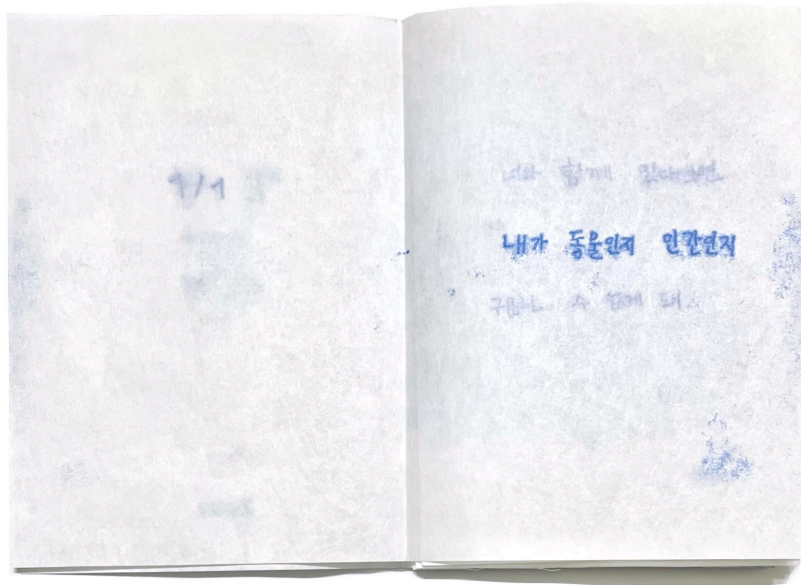 1/1
너와 함께 있다보면
내가 동물인지 인간인지
구분할 수 없게 돼